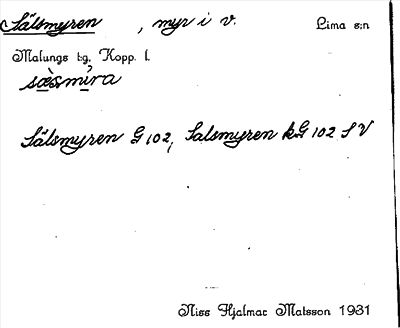 Sälsmyren, myr i v. Lima s:n
Malungs tg. Kopp. l.
sæ̀smı̣ra
Sälsmyren G 102, Salsmyren kG 102 SV
Niss Hjalmar Matsson 1931